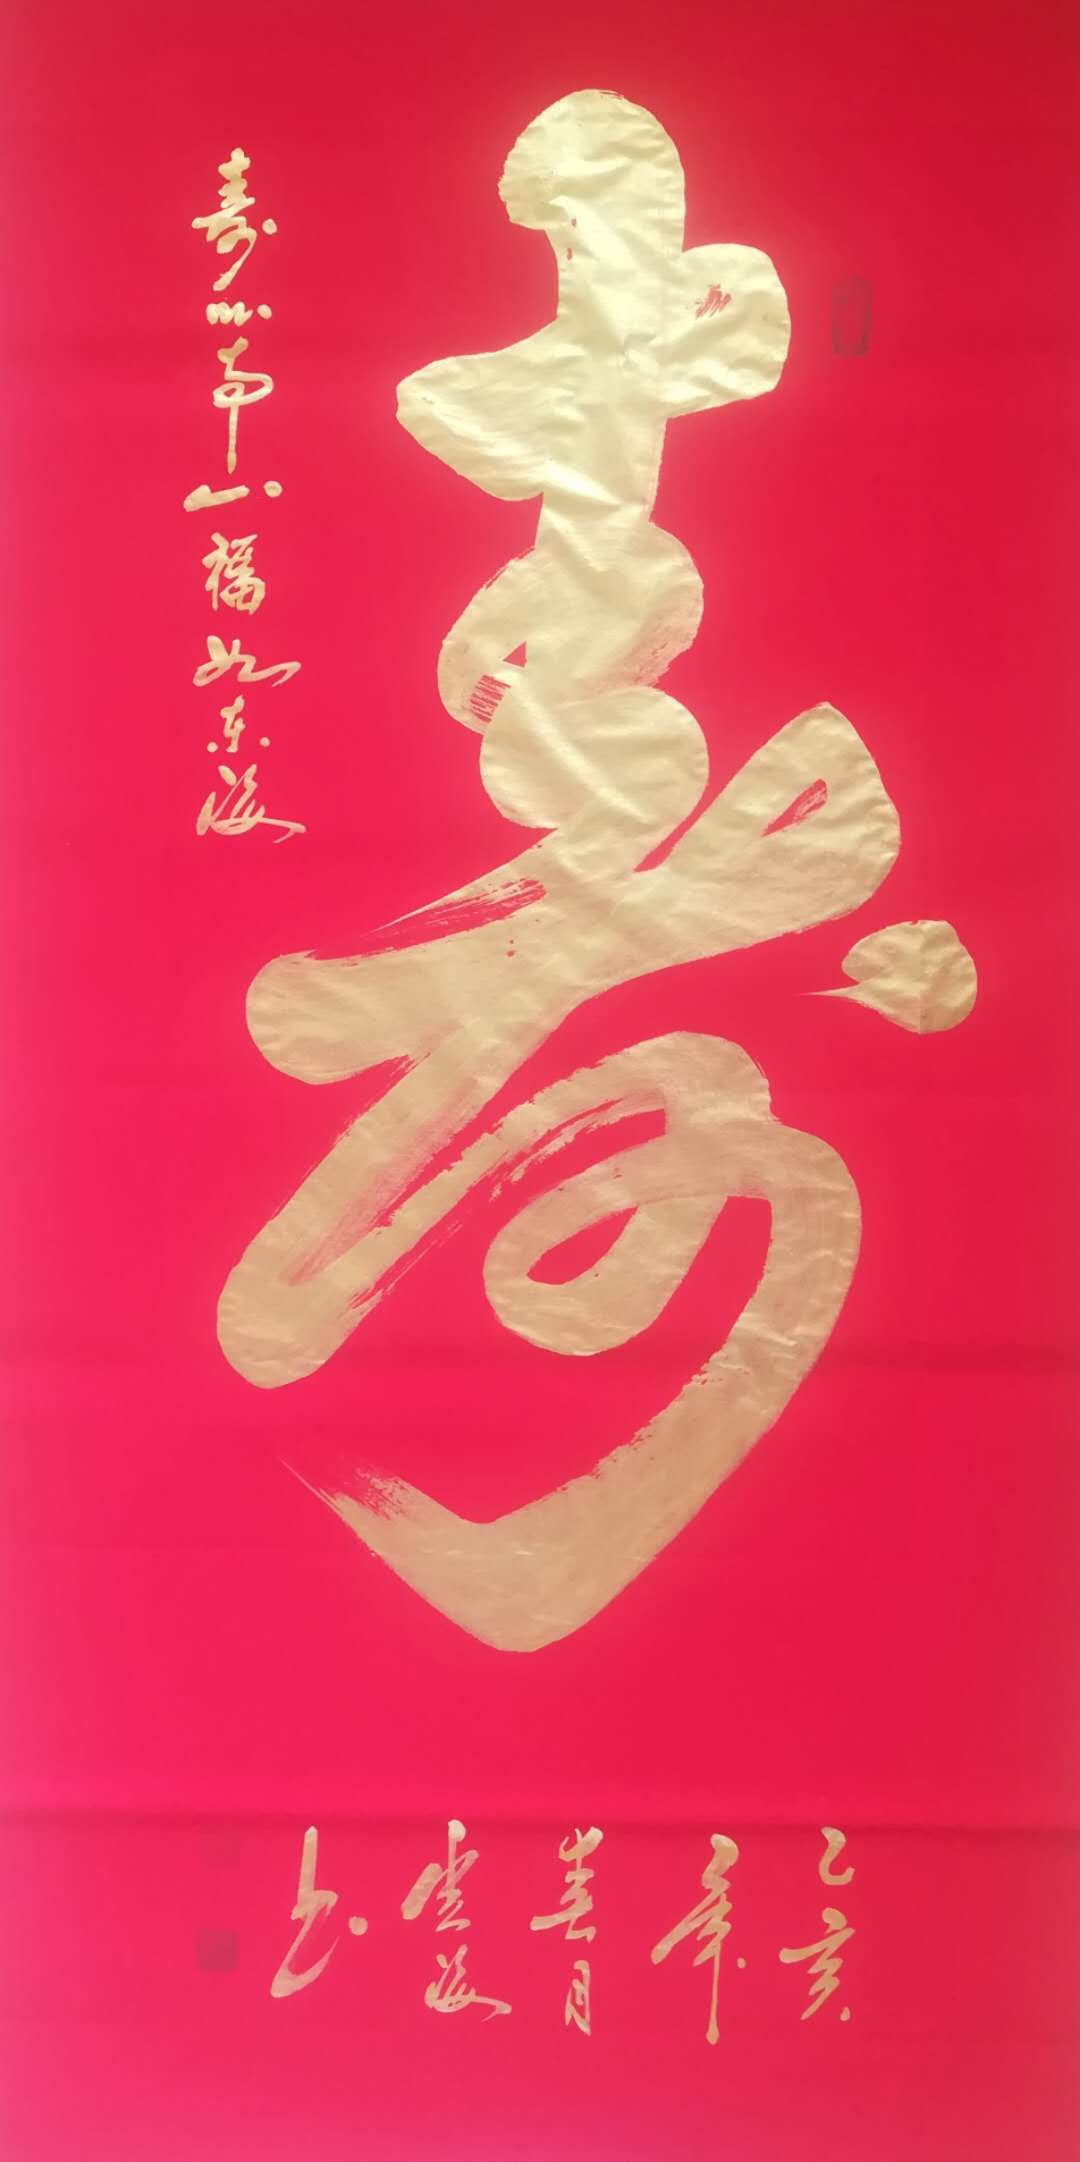 寿
寿比南山福如东海
己亥
年
春月
海
书